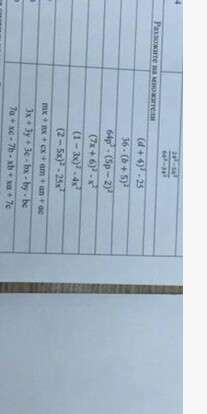 4
Разложите на множители
(d + 4)² - 25
36 - (b + 5)²
64p² - (5p - 2)²
(7x + 6)² - x²
(1 - 3x)² - 4x²
(2 - 5x)² - 25x²
mx + nx + cx + am + an + ac
3x + 3y + 3c - bx - by - bc
7a + xc - 7b - xb + xa + 7c